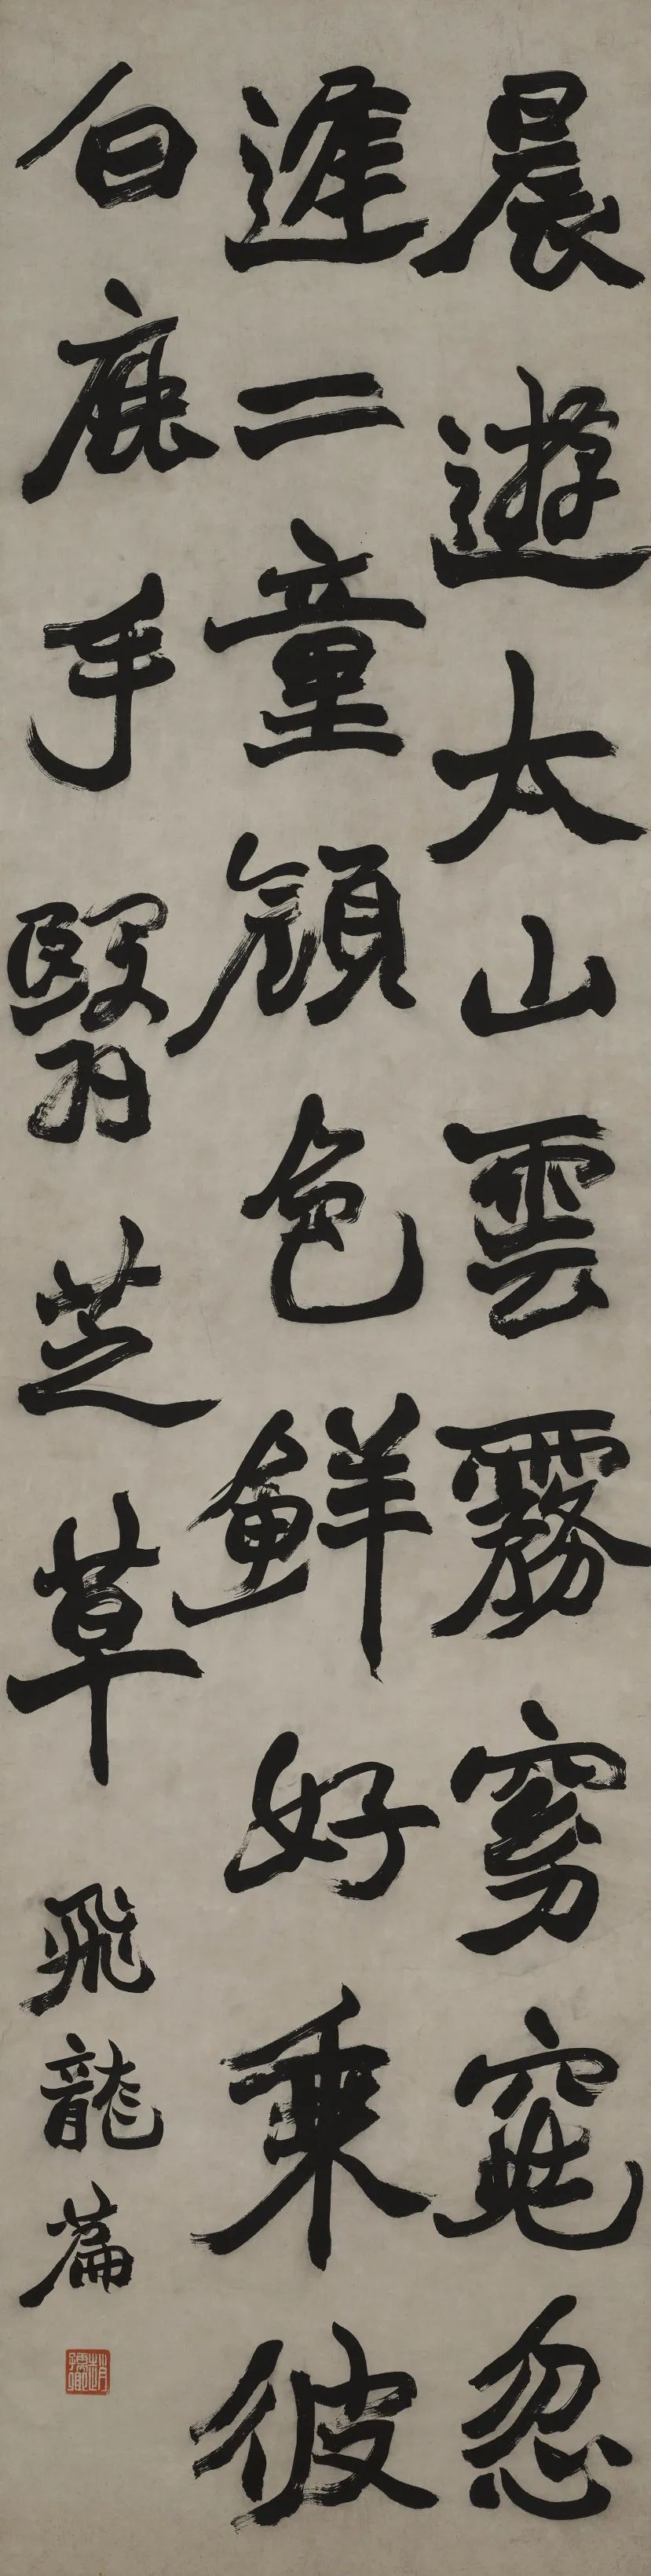 晨遊太山雲霧窈窕忽
逢二童顏色鮮好乘彼
白鹿手翳芝草飛龍篇